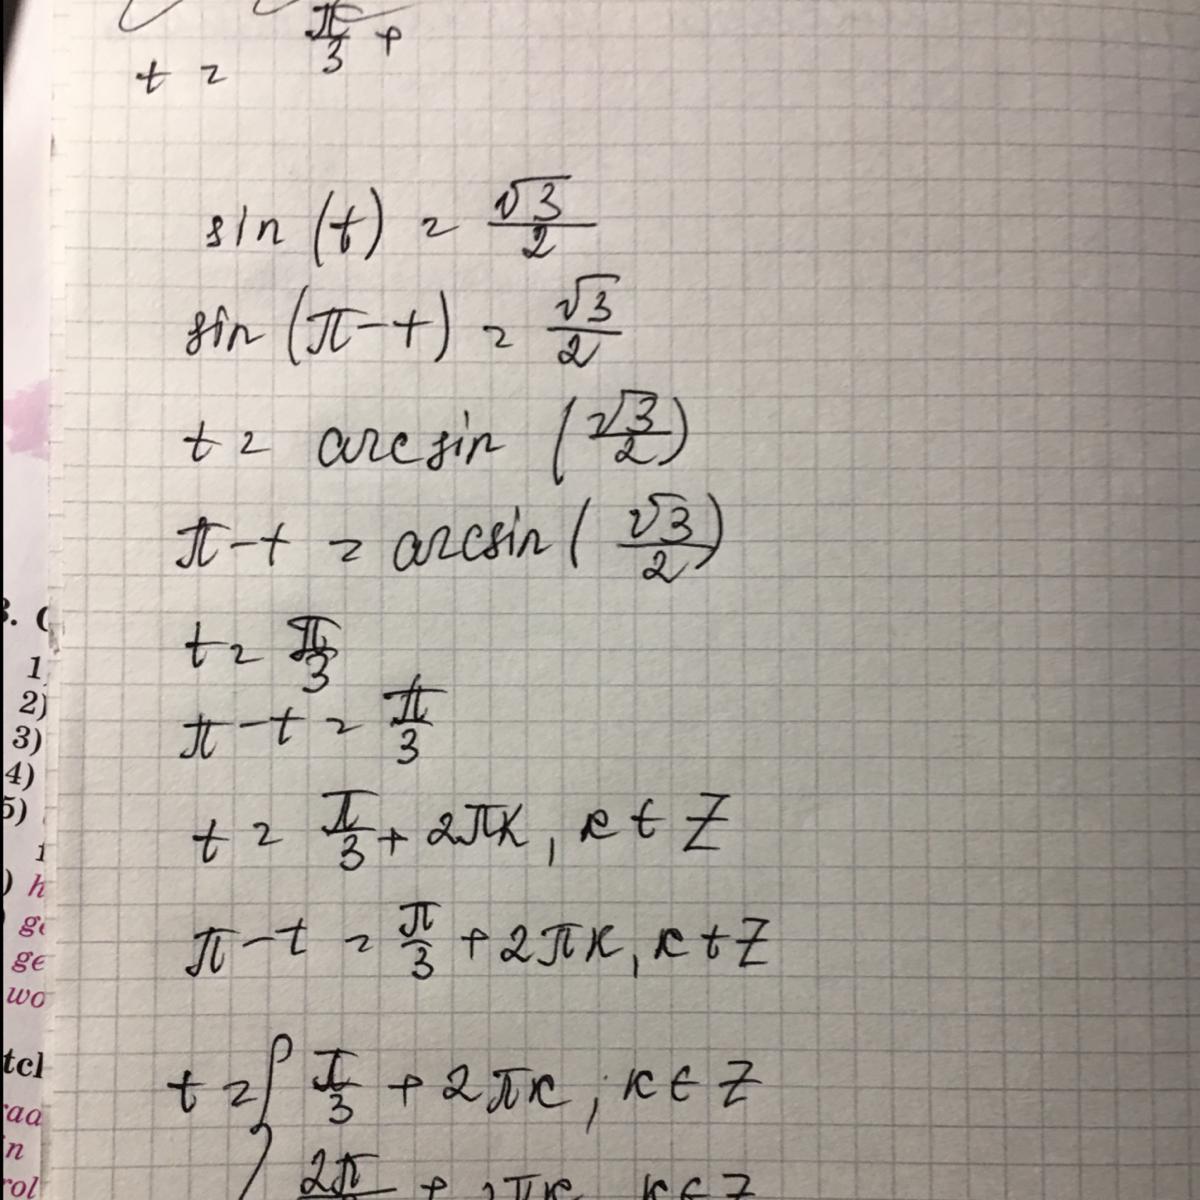 π/3 +
t =
sin (t) = √3/2
sin (π-t) = √3/2
t = arcsin (√3/2)
π-t = arcsin (√3/2)
t = π/3
π-t = π/3
t = π/3 + 2πk, k ∈ Z
π-t = π/3 + 2πk, k ∈ Z
t = { π/3 + 2πk; k ∈ Z
2π/ + 2πk k ∈ Z
1
2)
3)
4)
5)
1
) h
ge
ge
wo
tcl
raa
n
rol